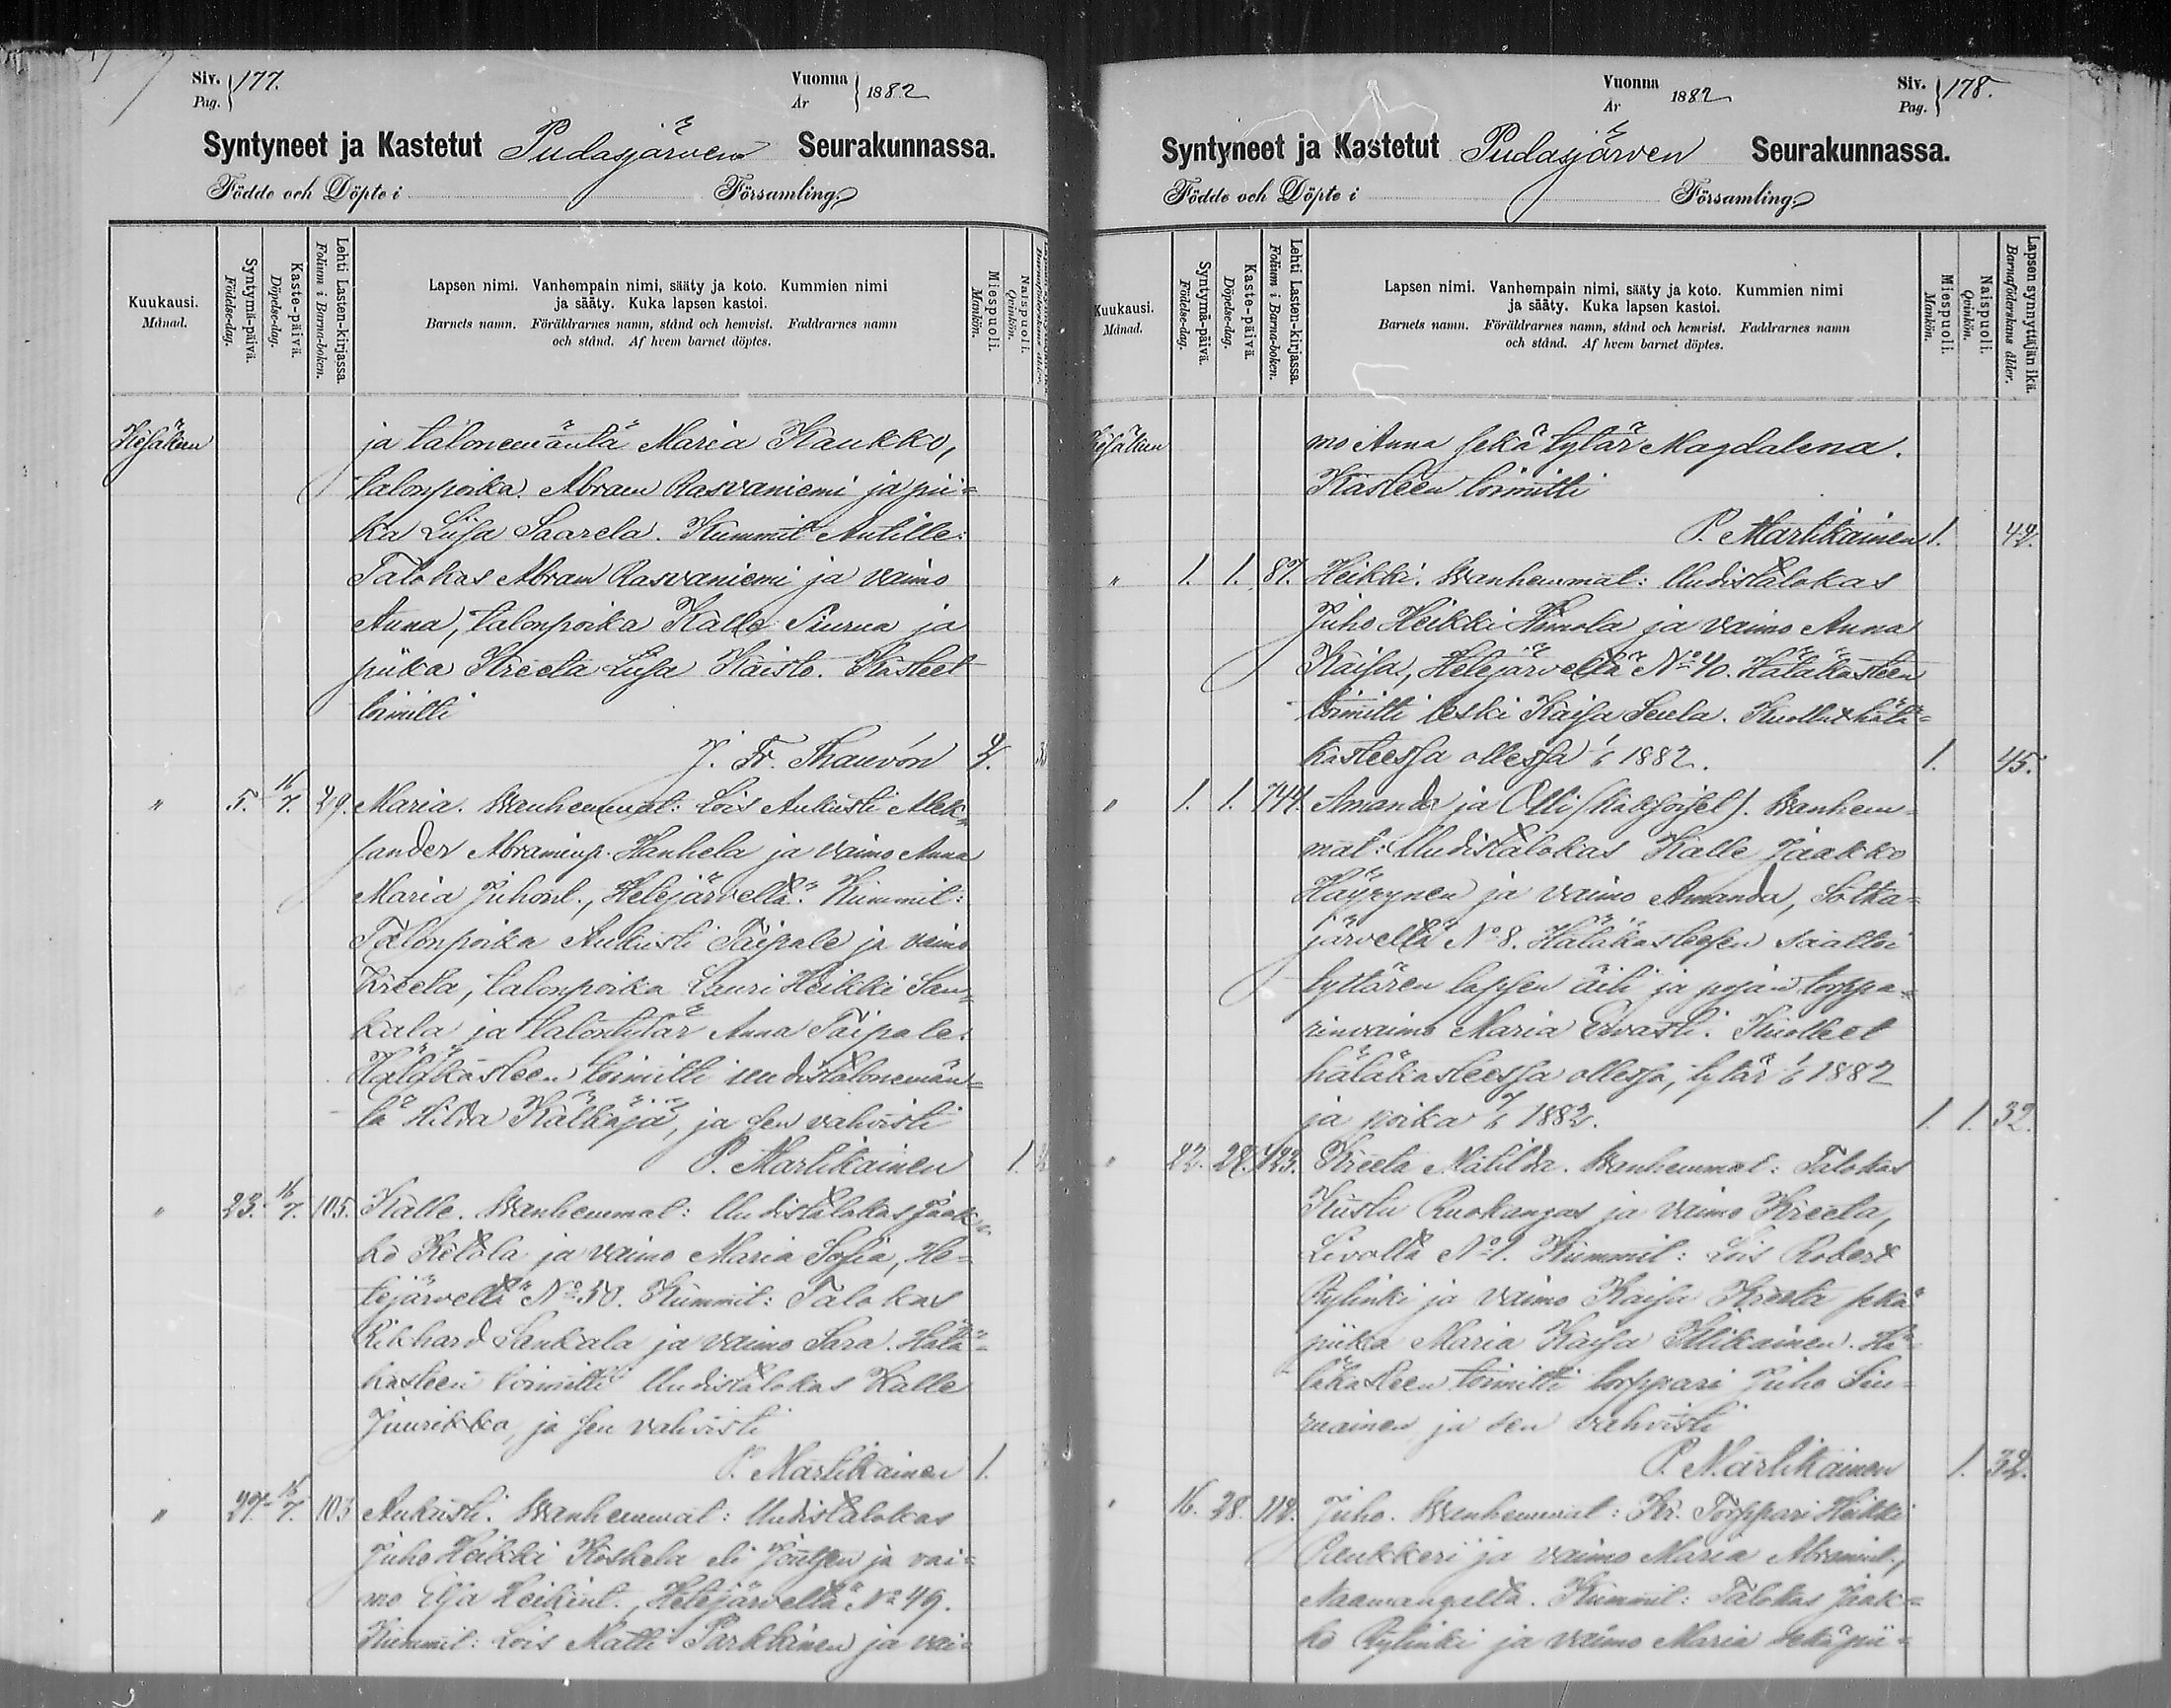 Siv. 177.
Pag.
Vuonna 1882
År
Syntyneet ja Kastetut Pudasjärven Seurakunnassa.
Födde och Döpte i Församling.
Kuukausi.
Månad.
Syntymä-päivä.
Födelse-dag.
Kaste-päivä.
Döpelse-dag.
Lehti Lasten-kirjassa.
Folium i Barna-boken.
Lapsen nimi. Vanhempain nimi, sääty ja koto. Kummien nimi
ja sääty. Kuka lapsen kastoi.
Barnets namn. Föräldrarnes namn, stånd och hemvist. Faddrarnes namn
och stånd. Af hvem barnet döptes.
Miespuoli.
Mankön.
Naispuoli.
Qvinkön.
Kesäkuu ja talonemäntä Maria Kaukko,
talonpoika Abram Rasvaniemi ja pii=
ka Liisa Saarela. Kummit Antille:
Talokas Abram Rasvaniemi ja vaimo
Anna, talonpoika Kalle Siurua ja
piika Kreeta Liisa Kaisto. Kasteet
toimitti
J. Fr. Thauvón 2.
" 5. 16/7. 29. Maria. Wanhemmat: Lois Aukusti Alek=
sander Abraminp. Hanhela ja vaimo Anna
Maria Juhont., Hetejärvellä. Kummit:
Talonpoika Aukusti Taipale ja vaimo
Kreeta, talonpoika Lauri Heikki San=
kala ja talontytär Anna Taipale.
Hätäkasteen toimitti uudistalonemän=
tä Hilda Kälkäjä, ja sen vahvisti
P. Martikainen 1.
" 23. 16/7. 105. Kalle. Wanhemmat: Uudistalokas Jaak=
ko Ketola ja vaimo Maria Sofia, He=
tejärvellä No 50. Kummit: Talokas
Rikhard Sankala ja vaimo Sara. Hätä=
kasteen toimitti Uudistalokas Kalle
Juurikka, ja sen vahvisti
P. Martikainen 1.
" 27. 16/7. 103 Aukusti. Wanhemmat: Uudistalokas
Juho Heikki Koskela eli Joutsen ja vai=
mo Elsa Heikint., Hetejärvellä No 49.
Kummit: Lois Matti Parkkinen ja vai=
Vuonna 1882
År
Siv. 178.
Pag.
Syntyneet ja Kastetut Pudasjärven Seurakunnassa.
Födde och Döpte i Församling.
Kuukausi.
Månad.
Syntymä-päivä.
Födelse-dag.
Kaste-päivä.
Döpelse-dag.
Lehti Lasten-kirjassa.
Folium i Barna-boken.
Lapsen nimi. Vanhempain nimi, sääty ja koto. Kummien nimi
ja sääty. Kuka lapsen kastoi.
Barnets namn. Föräldrarnes namn, stånd och hemvist. Faddrarnes namn
och stånd. Af hvem barnet döptes.
Miespuoli.
Mankön.
Naispuoli.
Qvinkön.
Lapsen synnyttäjän ikä.
Barnaföderskans ålder.
Kesäkuu mo Anna sekä tytär Magdalena.
Kasteen toimitti
P. Martikainen 1. 42.
" 1. 1. 87. Heikki. Wanhemmat: Uudistalokas
Juho Heikki Himola ja vaimo Anna
Kaisa, Hetejärvellä No 40. Hätäkasteen
toimitti leski Kaisa Seula. Kuollut hätä=
kasteessa ollessa 1/6 1882. 1. 45.
" 1. 1. 744. Amanda ja Olli (kaksoiset). Wanhem=
mat: Uudistalokas Kalle Jaakko
Häyrynen ja vaimo Amanda, Sotka=
järvellä No 8. Hätäkasteesen saattoi
tyttären lapsen äiti ja pojan torppa=
rinvaimo Maria Ervasti. Kuolleet
hätäkasteessa ollessa, tytär 1/6 1882
ja poika 7/6 1882. 1. 1. 32.
" 22. 28. 123. Kreeta Matilda. Wanhemmat: Talokas
Kustu Ruokangas ja vaimo Kreeta,
Livolla No 1. Kummit: Lois Robert
Rylinki ja vaimo Kaisa Kreeta sekä
piika Maria Kaisa Illikainen. Hä=
täkasteen toimitti torppari Juho Siu=
ruainen ja sen vahvisti
P. Martikainen 1. 32.
" 16. 28. 112. Juho. Wanhemmat: Kr. Torppari Heikki
Penkkeri ja vaimo Maria Abramint.,
Naamangalla. Kummit: Talokas Jaak=
ko Rylinki ja vaimo Maria sekä pii=